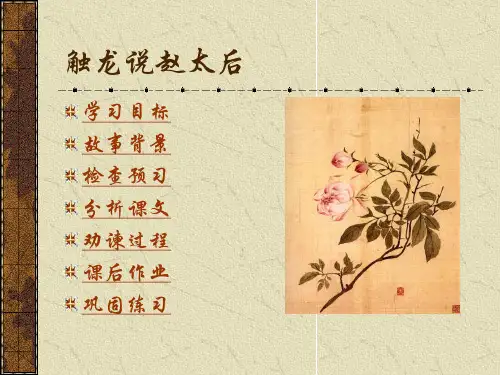 触龙说赵太后
学习目标
故事背景
检查预习
分析课文
劝谏过程
课后作业
巩固练习